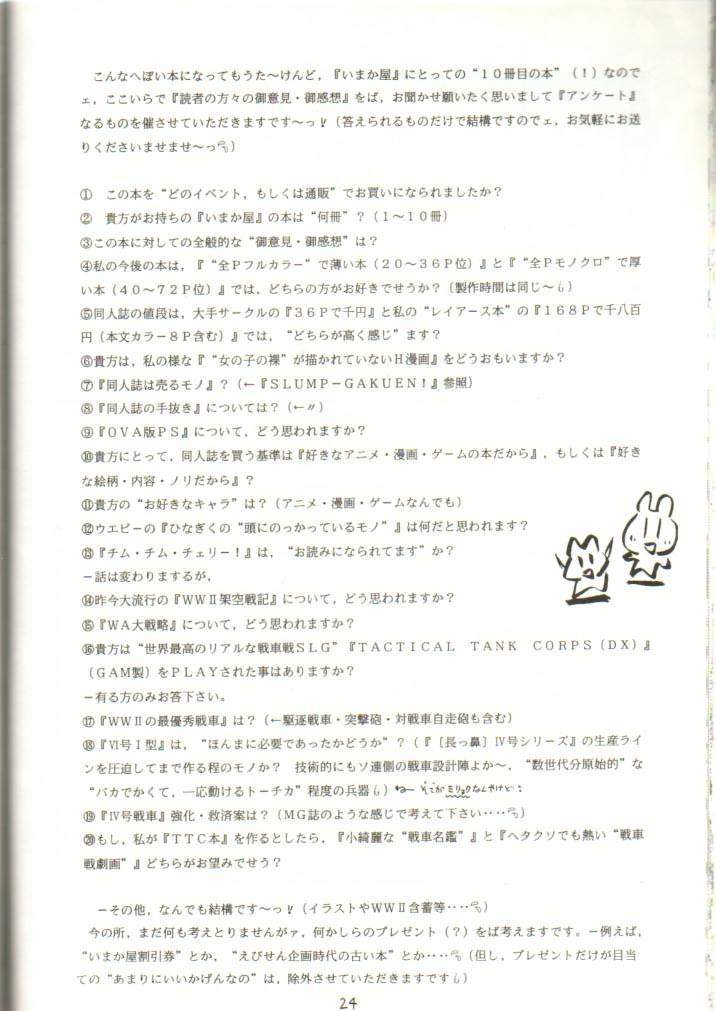 こんなへぼい本になってもうた～けんど，『いまか屋』にとっての“１０冊目の本”（！）なので
ェ，ここいらで『読者の方々の御意見・御感想』をば，お聞かせ願いたく思いまして『アンケート』
なるものを催させていただきますです～っ！（答えられるものだけで結構ですのでェ，お気軽にお送
りくださいませませ～っ）
①　この本を“どのイベント，もしくは通販”でお買いになられましたか？
②　貴方がお持ちの『いまか屋』の本は“何冊”？（１～１０冊）
③この本に対しての全般的な“御意見・御感想”は？
④私の今後の本は，『“全Ｐフルカラー”で薄い本（２０～３６Ｐ位）』と『“全Ｐモノクロ”で厚
い本（４０～７２Ｐ位）』では，どちらの方がお好きでせうか？（製作時間は同じ～）
⑤同人誌の値段は，大手サークルの『３６Ｐで千円』と私の“レイアース本”の『１６８Ｐで千八百
円（本文カラー８Ｐ含む）』では，“どちらが高く感じ”ます？
⑥貴方は，私の様な『“女の子の裸”が描かれていないＨ漫画』をどうおもいますか？
⑦『同人誌は売るモノ』？（←『ＳＬＵＭＰ－ＧＡＫＵＥＮ！』参照）
⑧『同人誌の手抜き』については？（←〃）
⑨『ＯＶＡ版ＰＳ』について，どう思われますか？
⑩貴方にとって，同人誌を買う基準は『好きなアニメ・漫画・ゲームの本だから』，もしくは『好き
な絵柄・内容・ノリだから』？
⑪貴方の“お好きなキャラ”は？（アニメ・漫画・ゲームなんでも）
⑫ウエピーの『ひなぎくの“頭にのっかっているモノ”』は何だと思われます？
⑬『チム・チム・チェリー！』は，“お読みになられてます”か？
－話は変わりまするが，
⑭昨今大流行の『ＷＷⅡ架空戦記』について，どう思われますか？
⑮『ＷＡ大戦略』について，どう思われますか？
⑯貴方は“世界最高のリアルな戦車戦ＳＬＧ”『ＴＡＣＴＩＣＡＬ　ＴＡＮＫ　ＣＯＲＰＳ（ＤＸ）』
（ＧＡＭ製）をＰＬＡＹされた事はありますか？
－有る方のみお答下さい。
⑰『ＷＷⅡの最優秀戦車』は？（←駆逐戦車・突撃砲・対戦車自走砲も含む）
⑱『Ⅵ号Ⅰ型』は，“ほんまに必要であったかどうか”？（『〔長っ鼻〕Ⅳ号シリーズ』の生産ライ
ンを圧迫してまで作る程のモノか？　技術的にもソ連側の戦車設計陣よか～，“数世代分原始的”な
“バカでかくて，一応動けるトーチカ”程度の兵器）← そこがミリョクなんやけど
⑲『Ⅳ号戦車』強化・救済案は？（ＭＧ誌のような感じで考えて下さい‥‥）
⑳もし，私が『ＴＴＣ本』を作るとしたら，『小綺麗な“戦車名鑑”』と『ヘタクソでも熱い“戦車
戦劇画”』どちらがお望みでせう？
－その他，なんでも結構です～っ！（イラストやＷＷⅡ含蓄等‥‥）
今の所，まだ何も考えとりませんがァ，何かしらのプレゼント（？）をば考えますです。－例えば，
“いまか屋割引券”とか，“えびせん企画時代の古い本”とか‥‥（但し，プレゼントだけが目当
ての“あまりにいいかげんなの”は，除外させていただきますです）
24